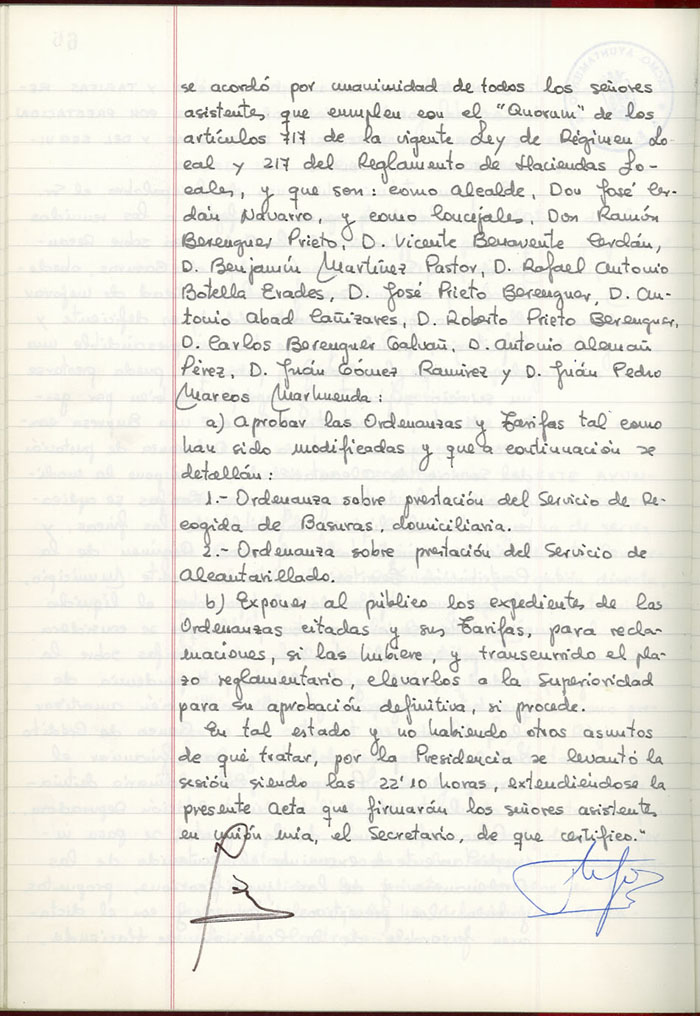 se acordó por unanimidad de todos los señores
asistentes, que cumplen con el "Quorum" de los
artículos 717 de la vigente Ley de Régimen Lo-
cal y 217 del Reglamento de Haciendas Lo-
cales, y que son: como Alcalde, Don José Cer-
dán Navarro, y como Concejales, Don Ramón
Berenguer Prieto, D. Vicente Benavente Cerdán,
D. Benjamín Martínez Pastor, D. Rafael Antonio
Botella Erades, D. José Prieto Berenguer, D. An-
tonio Abad Cañizares, D. Roberto Prieto Berenguer,
D. Carlos Berenguer Galvañ, D. Antonio Alemañ
Pérez, D. Juán Gómez Ramirez y D. Juán Pedro
Marcos Marhuenda:
a) Aprobar las Ordenanzas y Tarifas tal como
han sido modificadas y que a continuación se
detallán:
1.- Ordenanza sobre prestación del Servicio de Re-
cogida de Basuras, domiciliaria.
2.- Ordenanza sobre prestación del Servicio de
Alcantarillado.
b) Exponer al público los expedientes de las
Ordenanzas citadas y sus Tarifas, para recla-
maciones, si las hubiere, y transcurrido el pla-
zo reglamentario, elevarlos a la Superioridad
para su aprobación definitiva, si procede.
En tal estado y no habiendo otros asuntos
de qué tratar, por la Presidencia se levantó la
sesión siendo las 22'10 horas, extendiéndose la
presente Acta que firmarán los señores asistentes
en unión mía, el Secretario, de que certifico."